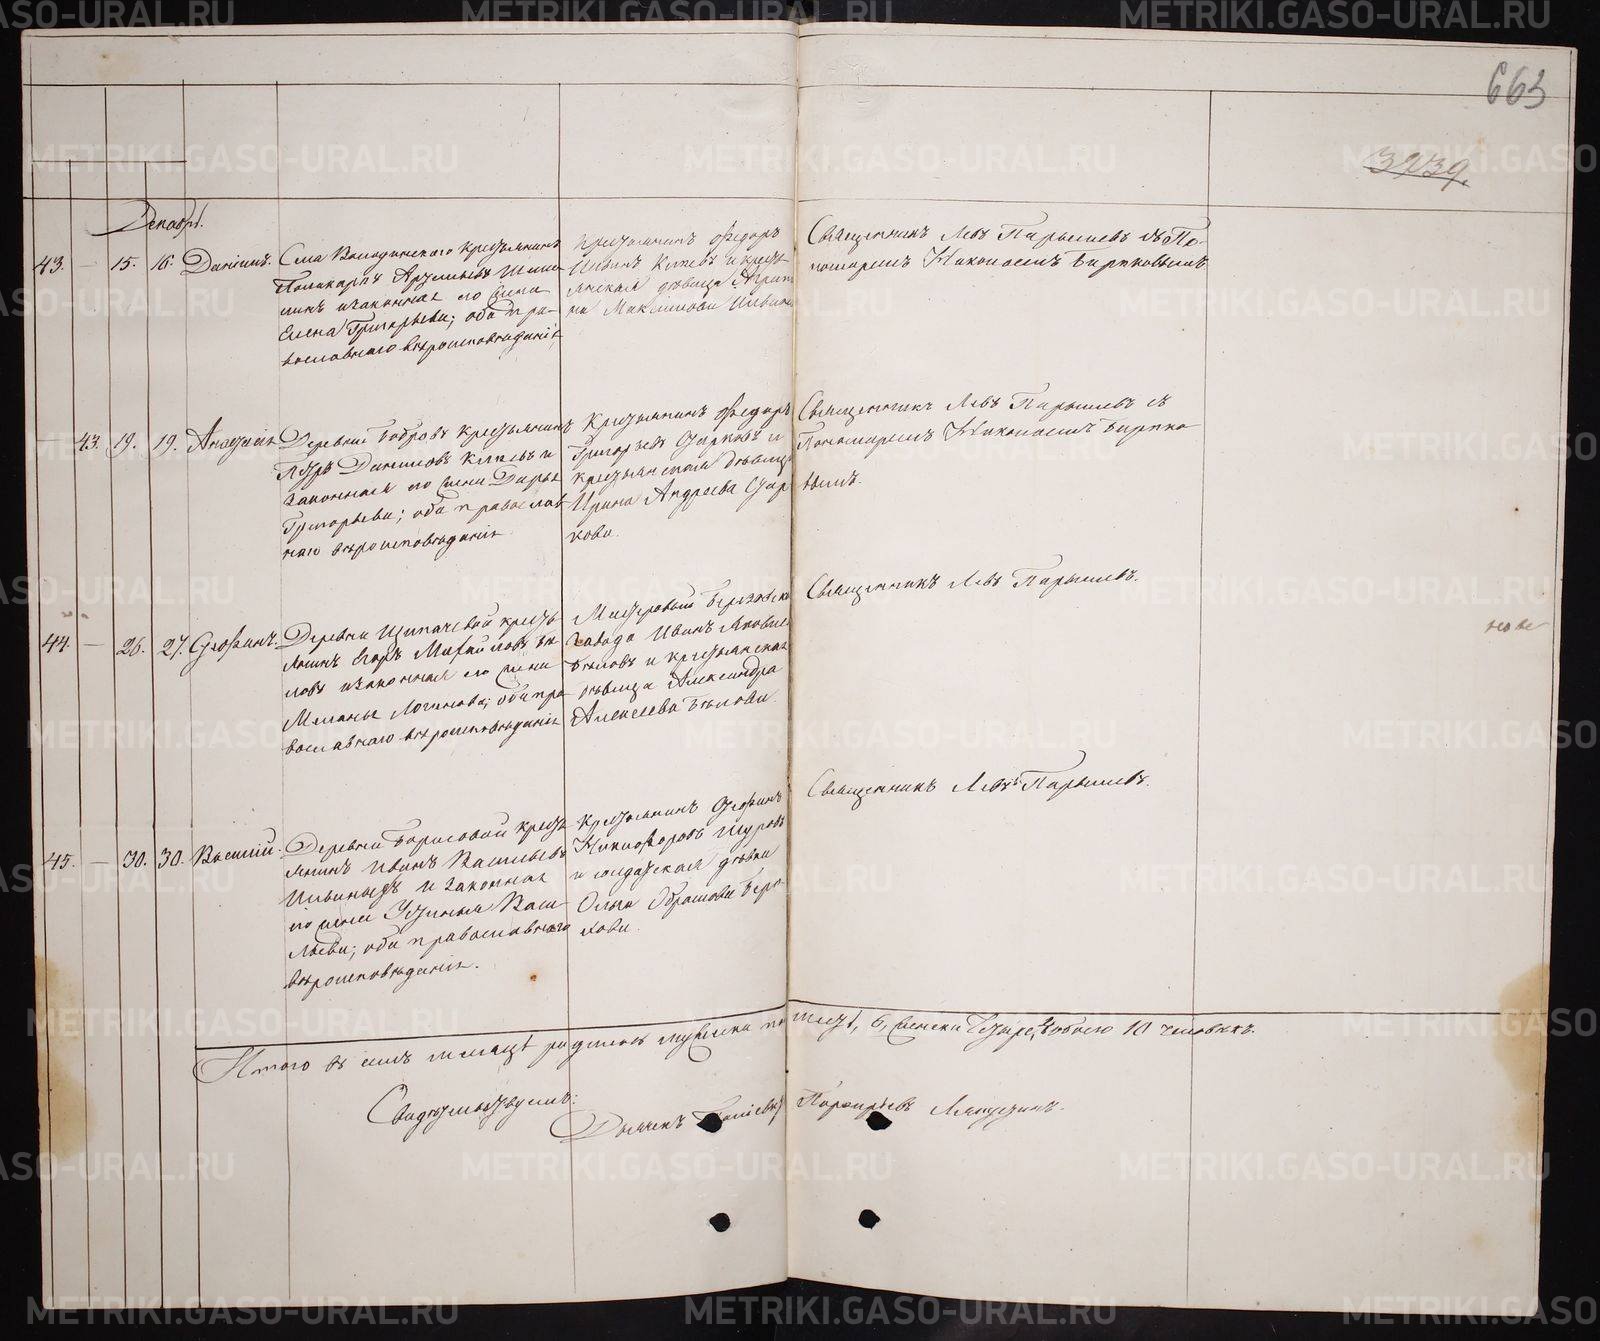 663
3239.
Декабрь.
43. — 15. 16. Даниилъ.
Села Володинскаго крестьянинъ
Поликарпъ
и законная его жена
Елена Григорьева; оба пра-
вославнаго вѣроисповѣданія
Крестьянинъ Федоръ
Ильинъ Китевъ и кресть
янская дѣвица
на Максимова Ильина
Священникъ Левъ Парышевъ съ По-
номаремъ Николаемъ Бирюковымъ
— 43. 19. 19. Анастасія
Деревни Бобровъ крестьянинъ
Петръ Даниловъ Китевъ и
законная его жена Дарья
Григорьева; оба православ-
наго вѣроисповѣданія
Крестьянинъ Федоръ
Григорьевъ Старковъ и
крестьянская дѣвица
Ирина Андреева Стар
кова.
Священникъ Левъ Парышевъ съ
Пономаремъ Николаемъ Бирюко
вымъ.
44. — 26. 27. Стефанъ.
Деревни Щипачевой кресть
янинъ Егоръ Михайловъ Бѣ
ловъ и законная его жена
Меланья Логинова; оба пра-
вославнаго вѣроисповѣданія
Мастеровый Березовск
завода Иванъ Яковле
Бѣловъ и крестьянская
дѣвица Александра
Алексѣева Бѣлова.
Священникъ Левъ Парышевъ.
45. — 30. 30. Василій.
Деревни Борисовой кресть
янинъ Иванъ Васильевъ
Ильиныхъ и законная
его жена Устинья Васи
льева; оба православнаго
вѣроисповѣданія.
Крестьянинъ Стефанъ
Никифоровъ Шуровъ
и солдатская дѣвка
Ольга Абрамова Бере
зова.
Священникъ Левъ Парышевъ.
Итого въ семъ мѣсяцѣ родилось мужеска по шесть, 6, женска четыре, 4, обоего 10 человѣкъ.
Свидѣтельствуемъ:
Дьячекъ Порфирьевъ Ляпустинъ.